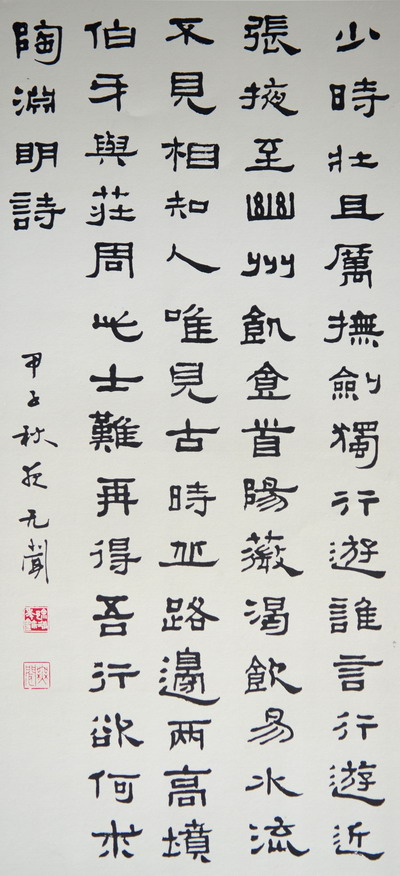 少時壯且厲撫劍獨行遊誰言行遊近
張掖至幽州飢食首陽薇渴飲易水流
不見相知人唯見古時丘路邊兩高墳
伯牙與莊周此士難再得吾行欲何求
陶淵明詩
甲子秋